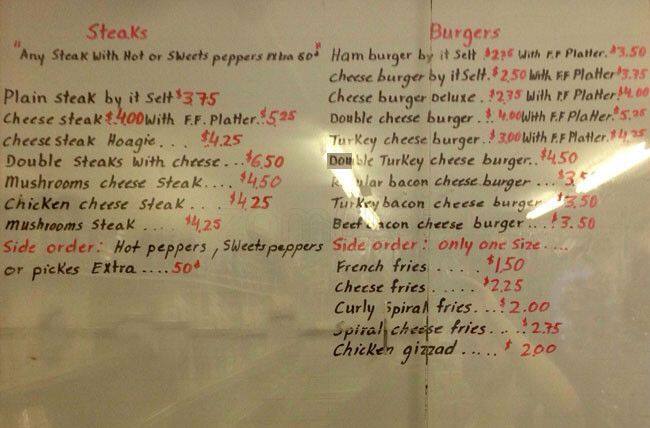 Steaks
"Any Steak With Hot or Sweets peppers Extra 60¢"
Plain steak by it Self $3.75
Cheese steak $4.00 With F.F. Platter. $5.25
cheese steak Hoagie . . . $4.25
Double Steaks With cheese ... $6.50
Mushrooms cheese Steak .... $4.50
Chicken cheese Steak . . . $4.25
mushrooms Steak .... $4.25
Side order: Hot peppers, Sweets peppers
or pickes Extra .... 50¢
Burgers
Ham burger by it Self $2.25 With F.F Platter. $3.50
cheese burger by it Self. $2.50 With F.F Platter $3.75
Cheese burger Deluxe . $2.75 With F.F Platter $4.00
Double cheese burger . $4.00 With F.F Platter. $5.25
Turkey cheese burger.. $3.00 With F.F Platter. $4.25
Double Turkey cheese burger.. $4.50
bacon cheese burger ...
Turkey bacon cheese burger $3.50
Beef bacon cheese burger ... $3.50
Side order: only one Size ....
French fries . . . . . $1.50
Cheese fries ..... $2.25
Curly Spiral fries ... $2.00
Spiral cheese fries .... $2.75
Chicken gizzad ..... $2.00